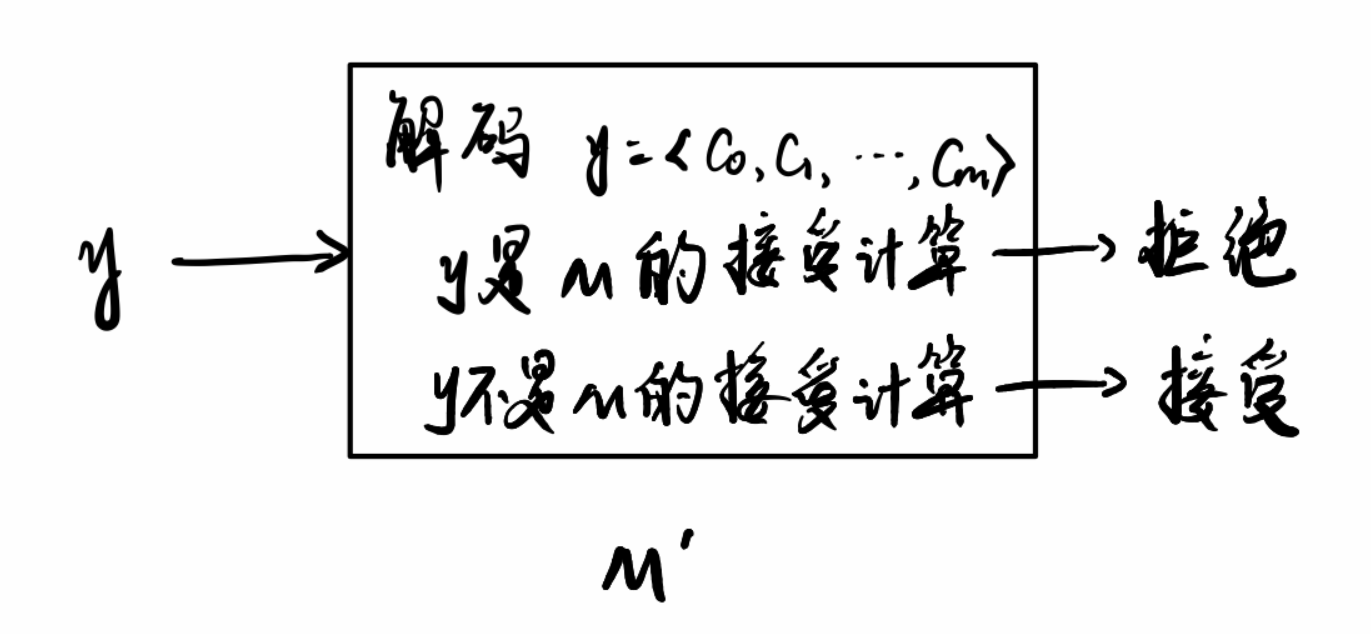 解码 y=<C₀,C₁,…,Cₘ>
y
y是M的接受计算
拒绝
y不是M的接受计算
接受
M'